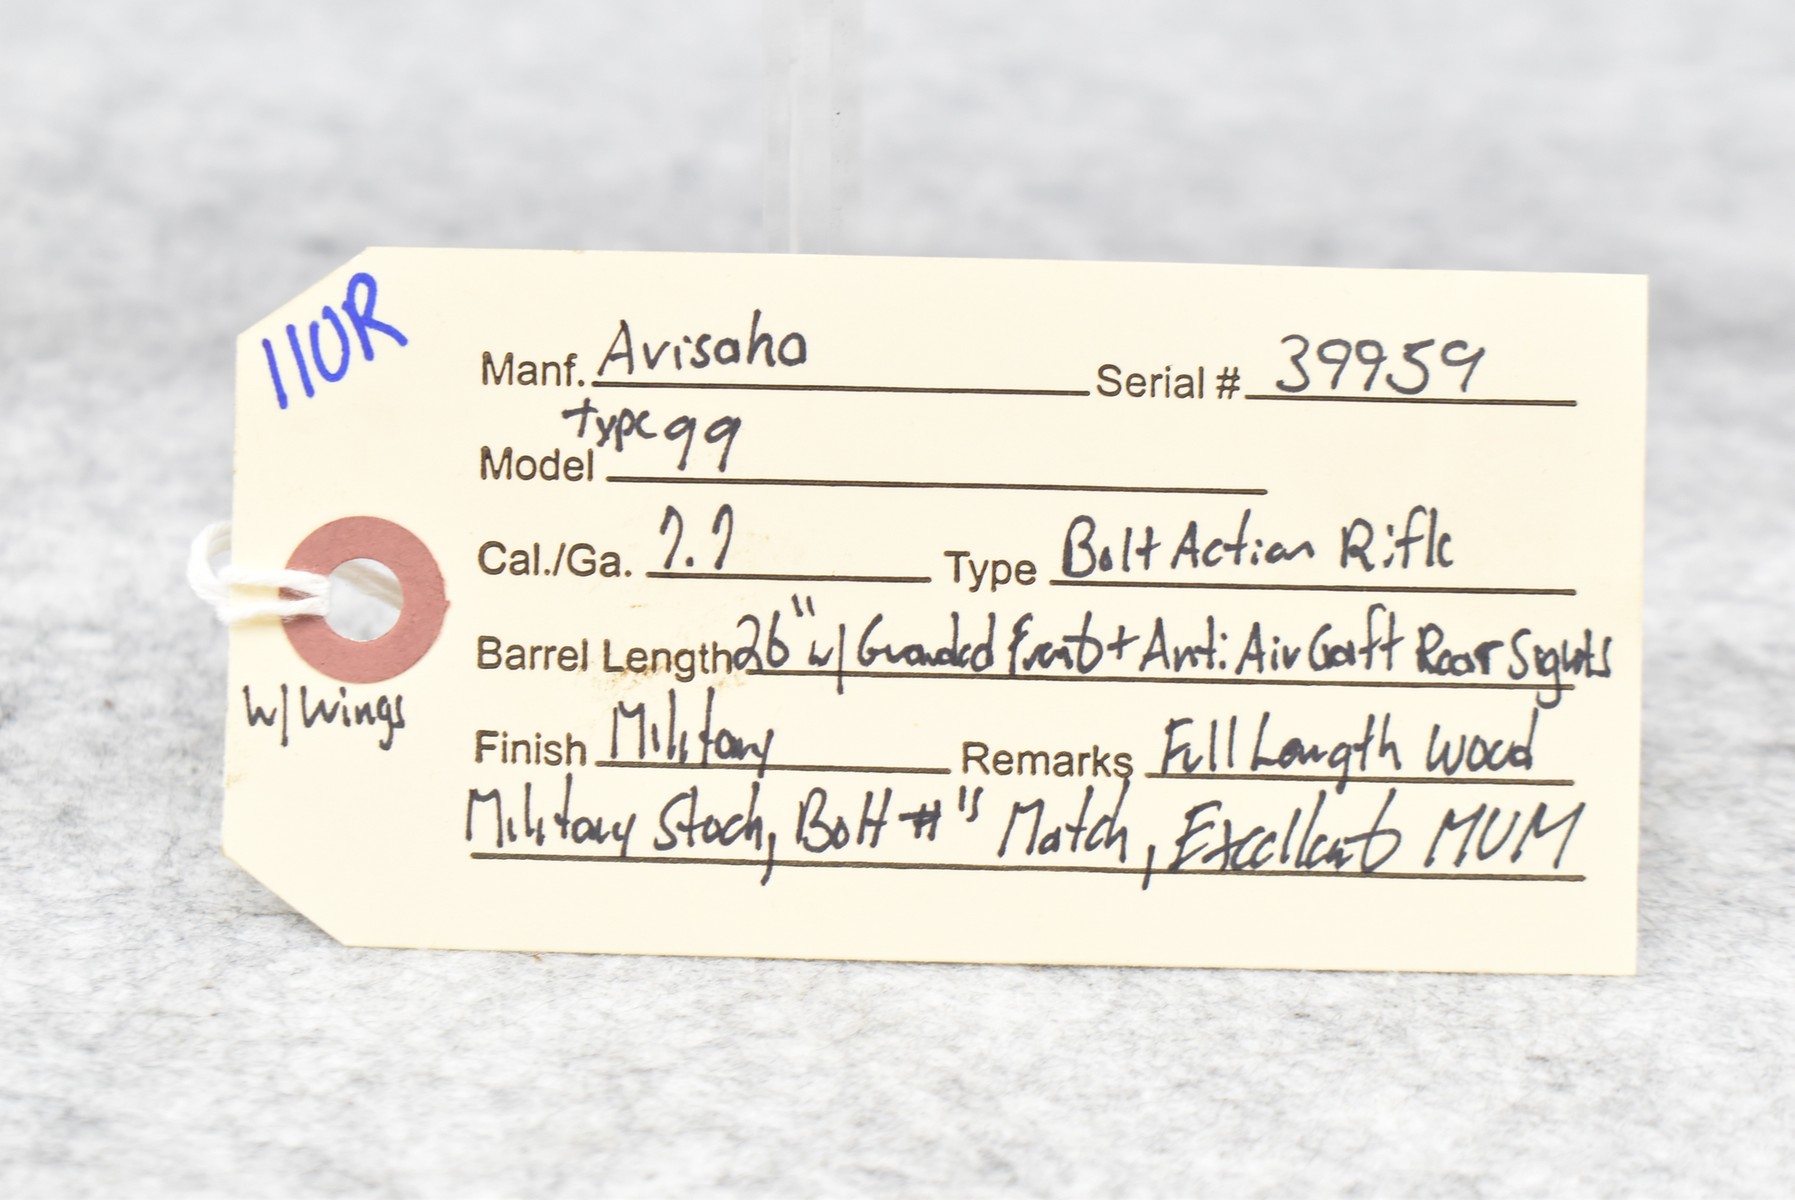 110R
Manf. Arisaka Serial # 39959
Type 99
Model
Cal./Ga. 7.7 Type Bolt Action Rifle
Barrel Length 26" w/ Guarded Front + Anti-AirCraft Rear Sights
w/ Wings
Finish Military Remarks Full Length Wood
Military Stock, Bolt #"s Match, Excellent MUM